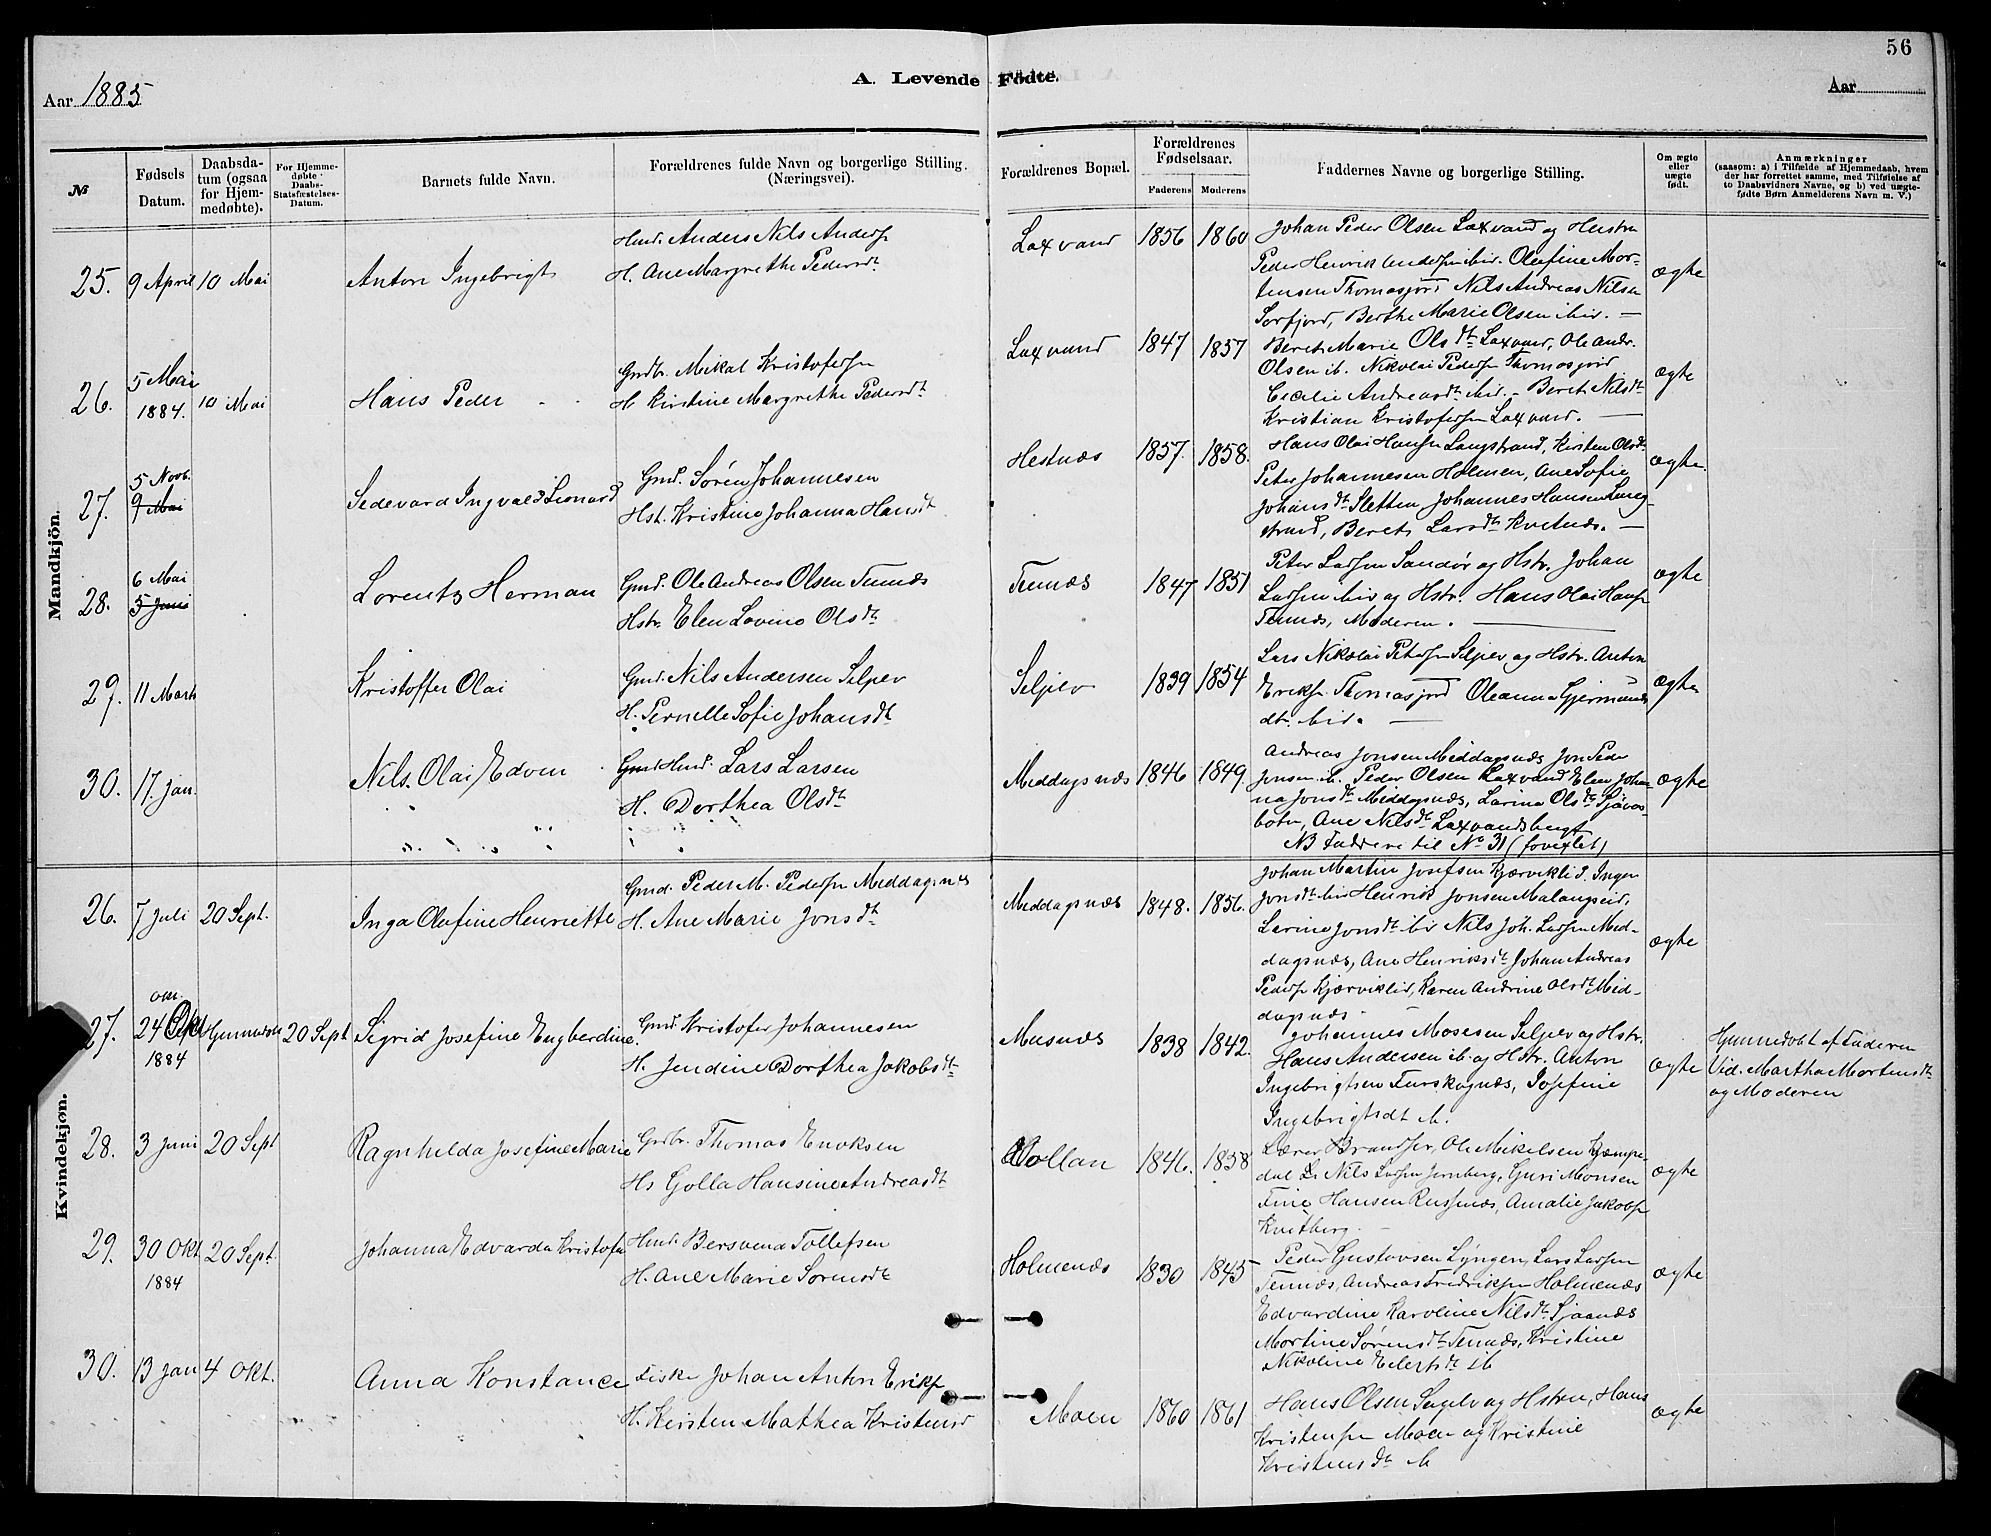 56
A. Levende Fødte.
Aar 1885
Aar
№
Fødsels Datum.
Daabsdatum (ogsaa for Hjemmedøbte).
For Hjemmedøbte Daabs-Statsfæstelses-Datum.
Barnets fulde Navn.
Forældrenes fulde Navn og borgerlige Stilling. (Næringsvei).
Forældrenes Bopæl.
Forældrenes Fødselsaar.
Faderens
Moderens
Faddernes Navne og borgerlige Stilling.
Om ægte eller uægte født.
Anmærkninger
(saasom: a) i Tilfælde af Hjemmedaab, hvem
der har forrettet samme, med Tilføielse af
to Daabsvidners Navne, og b) ved uægte-
fødte Børn Anmelderens Navn m. V.)
Mandkjön.
25. 9 April 10 Mai Anton Ingebrigt
Hmd. Anders Nils Anders.
H. Ane Margrethe Pedersdt
Laxvand 1856 1860
Johan Peder Olsen Laxvand og Hustru
Peder Henrik Andersen ibid. Olefine Mor-
tensen Thomasjord Nils Andreas Nilsen
Sørfjord, Berthe Marie Olsen ibid. —
ægte
26. 5 Mai 1884. 10 Mai Hans Peder
Grdbr. Mikal Kristofersen
H Kirstine Margrethe Pedersdt
Laxvand 1847 1857
Beret Marie Olsdt Laxvand, Ole Andr.
Olsen ib. Nikolai Peders. Thomasjord
Cecilie Andreasdt ibid. - Beret Nilsdt
Kristian Kristofersen Laxvand. —
ægte
27. 5 Novb. 9 Mai Sedevard Ingvald Leonard
Gmd. Søren Johannesen
Hst. Kristine Johanna Hansdt
Hestnæs 1857. 1858.
Hans Olai Hansen Langstrand, Kirsten Olsdt
Peter Johannesen Holmen, Ane Sofie
Johansdt Sletten Johannes Hansen Lang-
strand, Beret Larsdt Kvitnæs. —
ægte.
28. 6 Mai 5 Juni Lorents Herman
Gmd. Ole Andreas Olsen Tennæs
Hstr. Elen Lovina Olsdt
Tennæs 1847 1851
Peter Larsen Sandør og Hstr. Johan
Larsen ibid og Hstr. Hans Olai Hans.
Tennæs, Moderen. —
ægte
29. 11 Marts Kristoffer Olai
Gmd. Nils Andersen Seljelv
H. Pernelle Sofie Johansdt
Seljelv 1839 1854
Lars Nikolai Petersen Seljelv og Hstr. Anton
Eriks. Thomasjord Oleanna Gjermunds
dt. ibid. —
ægte
30. 17. Jan. Nils Olai Edvin
Gmd Hmd. Lars Larsen
H. Dorthea Olsdt
Middagsnæs 1846 1849.
Andreas Jonsen Middagsnæs, Jon Peder
Jonsen ib. Peder Olsen Laxvand Elen Johan-
na Jonsdt Middagsnæs, Larina Olsdt Sjøvas-
botn, Ane Nilsdt Laxvandsbergt
NB Faddere til No 31 (forvexlet)
ægte
Kvindekjøn.
26. 7 Juli 20 Sept. Inga Olefine Henriette
Gmd. Peder M. Peders. Middagsnæs
H. Ane Marie Jonsdt
Middagsnæs 1848. 1856.
Johan Martin Josefsen Kjærviklid. Inger
Jonsdt ibid Henrik Jonsen Malangseid,
Larine Jonsdt ibid Nils Joh. Larsen Mid-
dagsnæs, Ane Henriksdt Johan Andreas
Peders. Kjærviklid, Karen Andrine Olsdt Mid-
dagsnæs.
ægte
27. 24 Okt 1884 Hjemmedøbt 20 Sept. Sigrid Josefine Engberdine
Gmd Kristofer Johannesen
H. Jendine Dorthea Jakobsdt
Musnæs 1838 1842.
Johannes Mosesen Seljelv og Hstr.
Hans Andersen ib. og Hstr. Anton
Ingebrigtsen Furskognæs, Josefine
Ingebrigtsdt ib.
ægte
Hjemmedøbt af Faderen
Vid. Martha Mortensdt
og Moderen
28. 3 Juni 20 Sept Ragnhilda Josefine Marie
Grdbr. Thomas Enoksen
Hs Golla Hansine Andreasdt
Vollan 1846. 1858
Lærer Brandser, Ole Mikelsen Kjempe-
dal Nils Larsen Jernberg, Guri Monsen
Fine Hansen Russenæs, Amalie Jakobs.
Kvitberg.
ægte
29. 30 Okt 1884 20 Sept. Johanna Edvarda Kristofa
Hmd. Bersvend Tollefsen
H. Ane Marie Sørensdt
Holmenæs 1830 1845
Peder Gustavsen Lyngen, Lars Larsen
Tennæs, Andreas Fredriksen Holmenæs
Edvardine Karoline Nilsdt Sjaanæs
Mortine Sørensdt Tennæs, Kristine
Nikoline Eilertsdt ib
ægte
30. 13 Jan 4 Okt. Anna Konstance
Fisker Johan Anton Eriks.
H. Kirsten Mathea Kristensd
Moen 1860 1861
Hans Olsen Sagelv og Hstru, Hans
Kristensen Moen og Kristine
Kristensdt ib
ægte